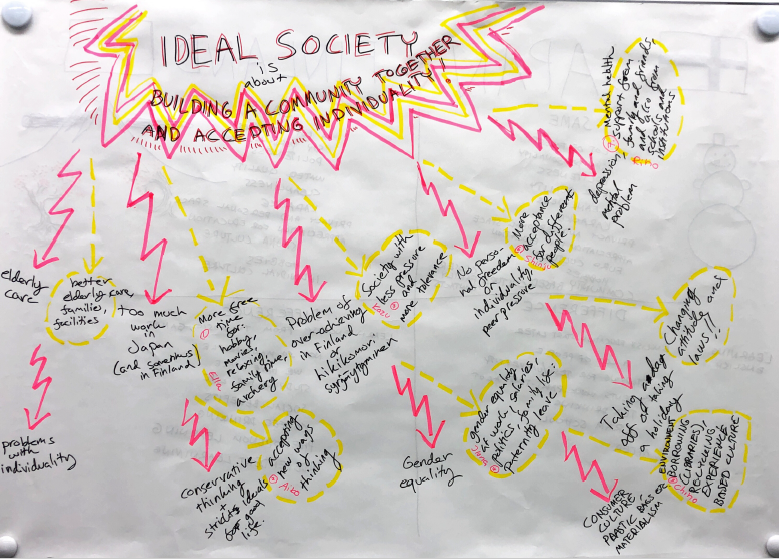 IDEAL SOCIETY
is
about
BUILDING A COMMUNITY TOGETHER
AND ACCEPTING INDIVIDUALITY!
elderly
care
better
elderly care,
families,
facilities
problems
with
individuality
too much
work
in
Japan
(and sometimes
in Finland)
More free
time
for:
hobby,
movies,
relaxing,
family time,
archery
Ella
conservative
thinking
+
strict ideals
for good
life.
accepting
new ways
of
thinking
Aino
Problem of
over-achieving
in Finland
or
hikikomori,
syrjäytyminen
Society with
less pressure
and
more tolerance
Gender
equality
gender equality
at work, salaries,
politics, family life:
Paternity leave
Jana
No perso-
nal freedom
or
individuality,
peer pressure
More
acceptance
for different
people!
Taking a day
off or taking
a holiday
Changing
attitude and
laws!!
CONSUMER
CULTURE
PLASTIC BAGS OR
MATERIALISM
ENVIRONMENT
BORROWING
(LIBRARIES),
RECYCLING,
EXPERIENCE
BASED CULTURE
Chino
depression,
mental
problem
mental health
support from
family and friends,
and also from
schools and
institutions
Rino